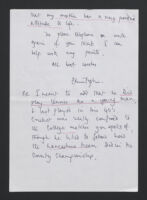 that my mother has a very positive
attitude to life.
Do please telephone or write
again if you think I can
help with any points.
All best wishes
P.S. I meant to add that he did
play tennis as a young man
& last played in his 40s
Cricket was really confined to
the College matches
though he liked to follow
the Lancashire team in the
County Championship.